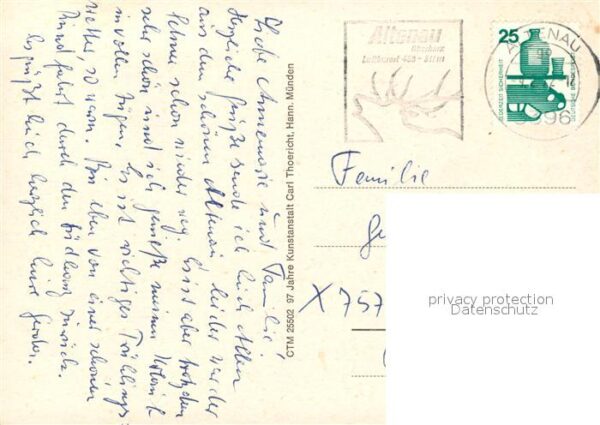 Liebe Annemarie und Familie!
Herzliche Grüße sende ich Euch Allen
aus dem schönen Altenau leider war der
Schnee schon wieder weg. Es ist aber trotzdem
sehr schön und ich genieße meinen Urlaub
in vollen Zügen. Es ist richtiges Frühlings-
wetter, so warm. Bin eben von einer schönen
Rundfahrt durch den Südharz zurück.
Es grüßt Euch herzlich Eure
CTM 25502 97 Jahre Kunstanstalt Carl Thoericht, Hann. Münden
Altenau
Oberharz
Luftkurort
25
ALTENAU
JEDERZEIT SICHERHEIT
DEUTSCHE BUNDESPOST
Familie
Ge
X 757
privacy protection
Datenschutz